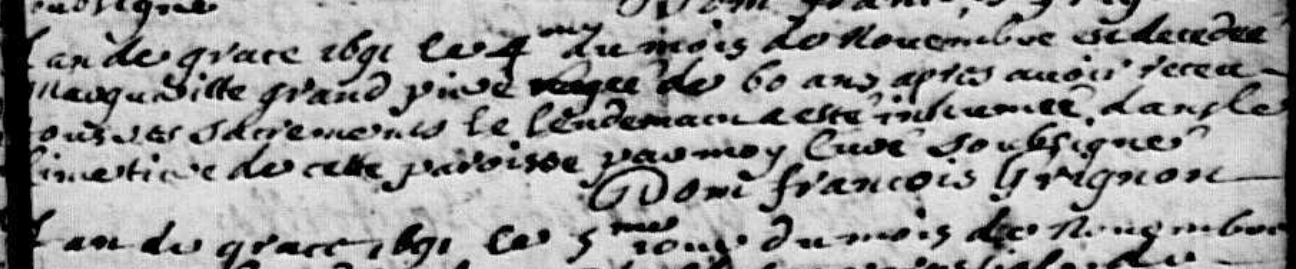 soubsigne
L'an de grace 1691 le 4 me du mois de Novembre est decedee
grand agee de 60 ans apres avoir receu
tous les sacrements le lendemain a esté inhumeé dans le
Cimetiere de cette paroisse par moy Curé soubsigné
Dom françois Grignon
L'an de grace 1691 le 5 me jour du mois de Novembre